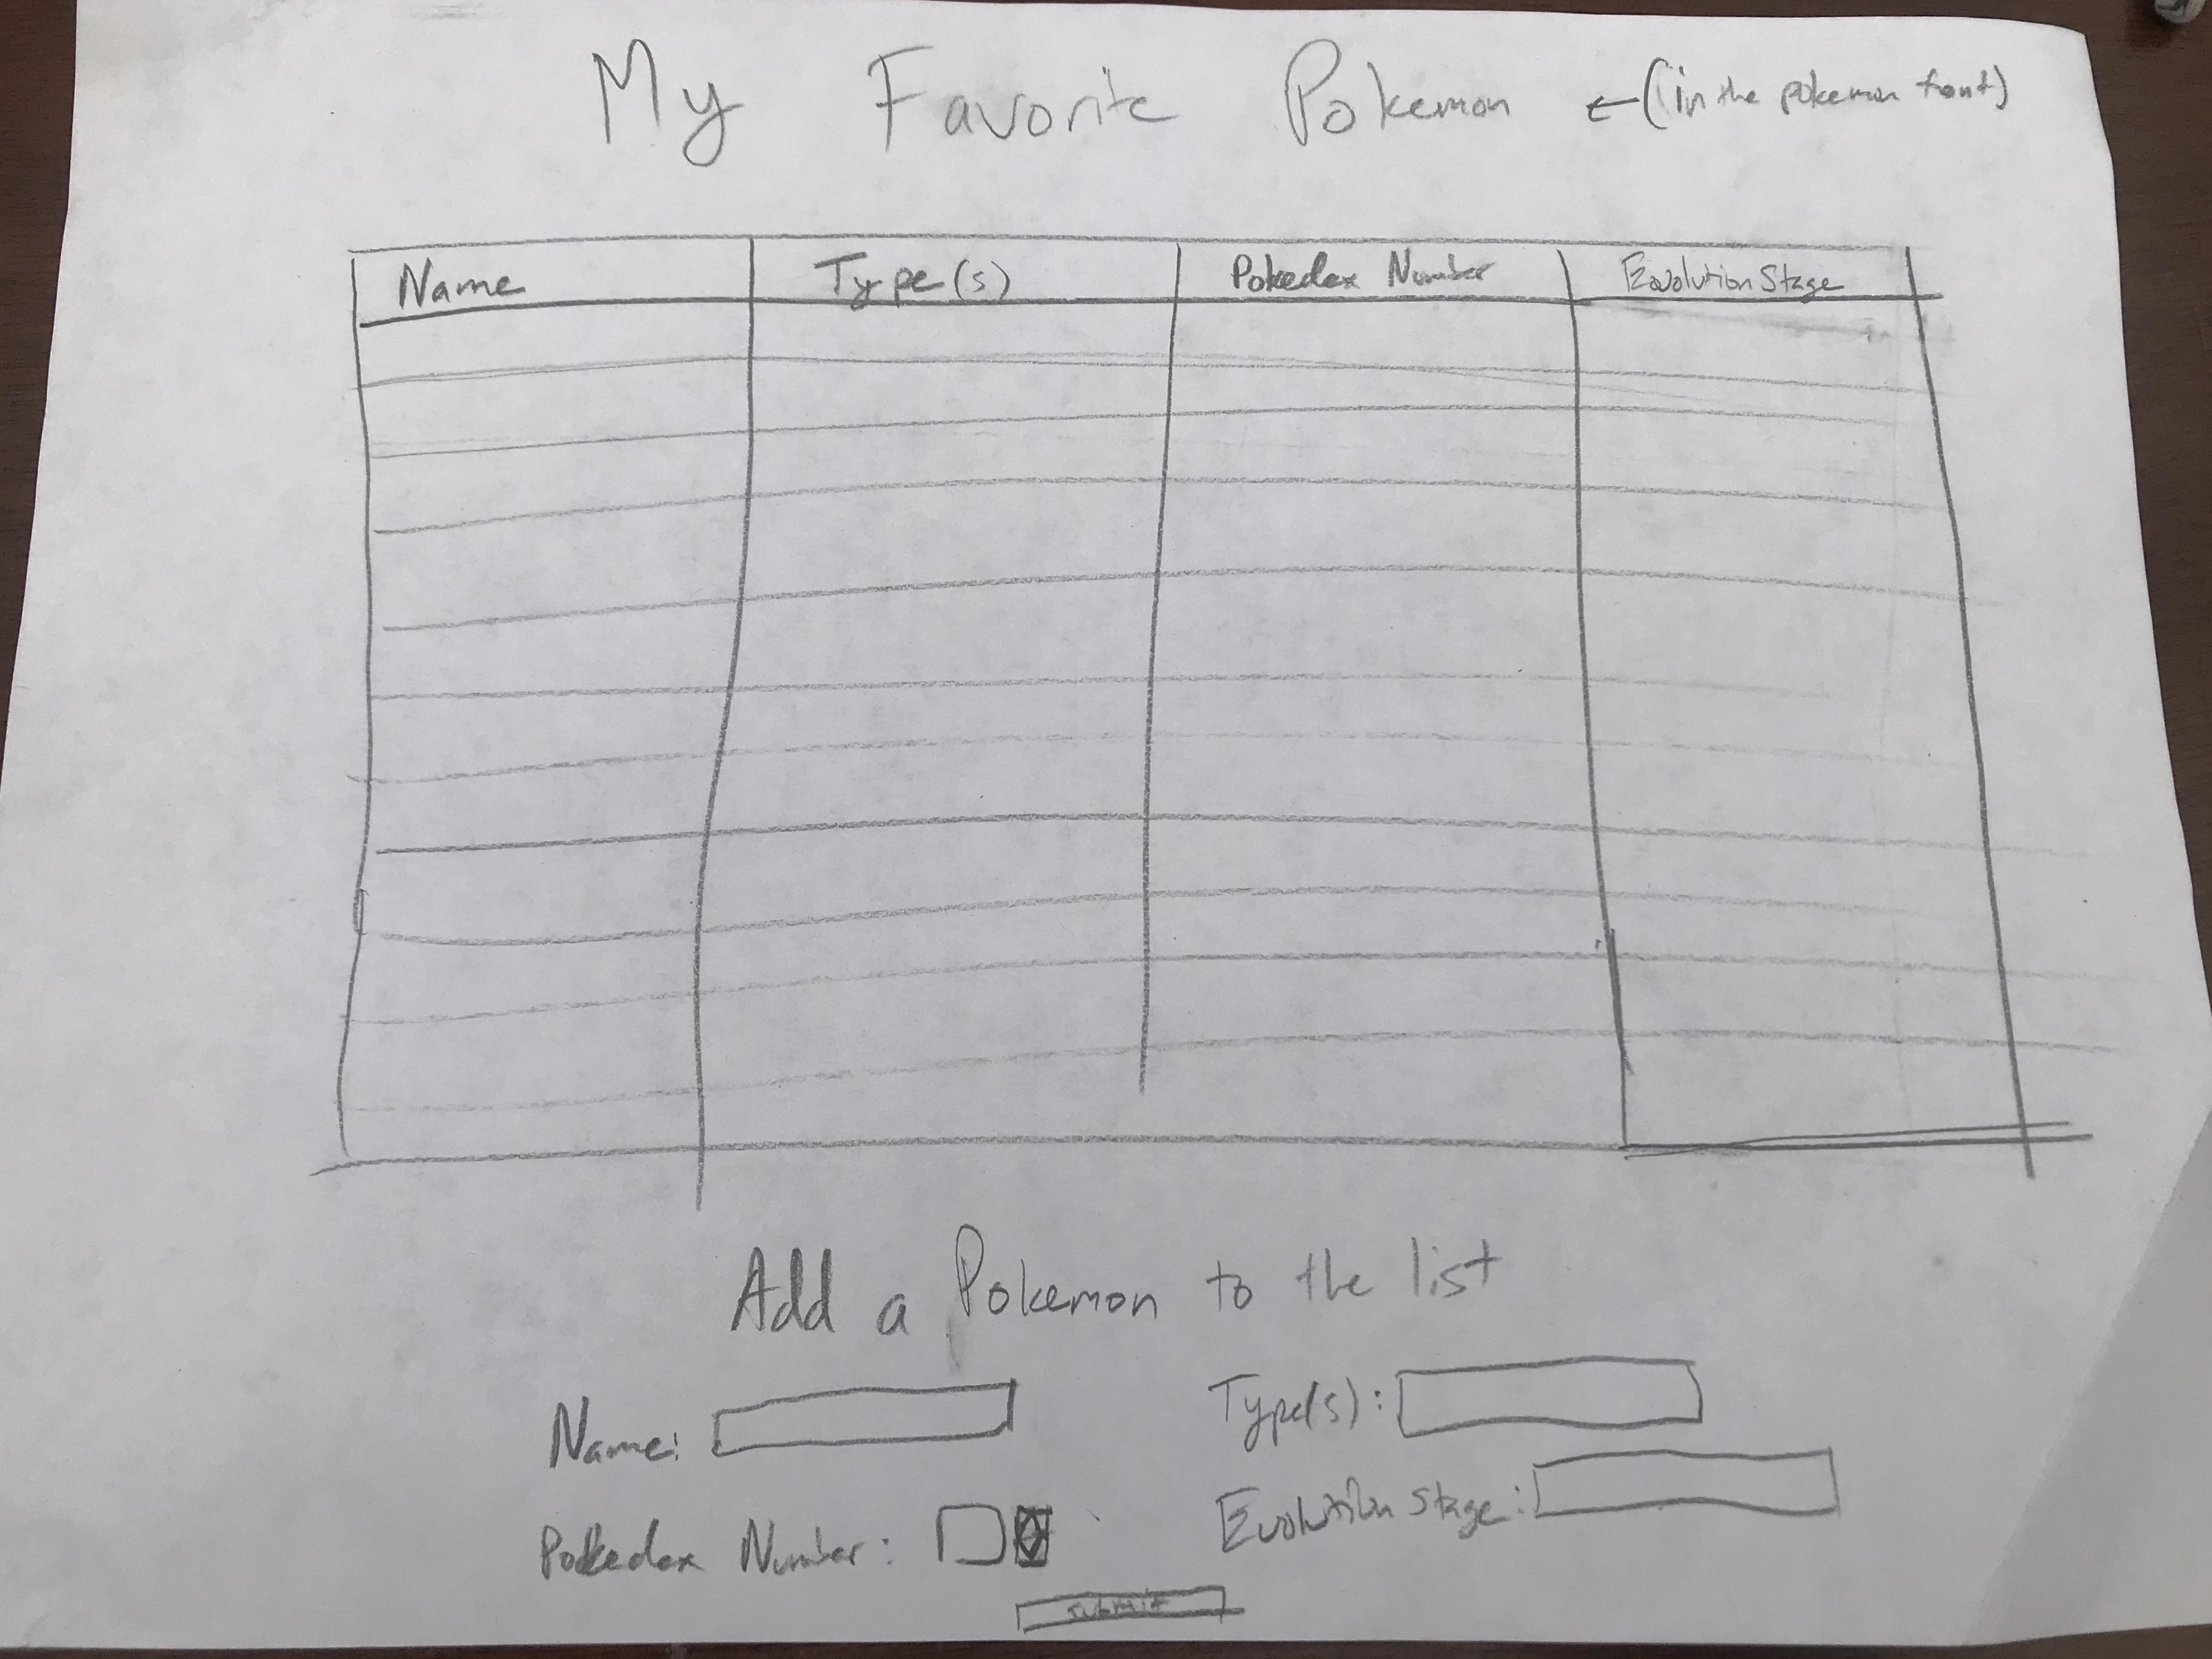 My Favorite Pokemon ←(in the pokemon font)
Name Type(s) Pokedex Number Evolution Stage
Add a Pokemon to the list
Name: Type(s):
Pokedex Number: Evolution Stage:
submit